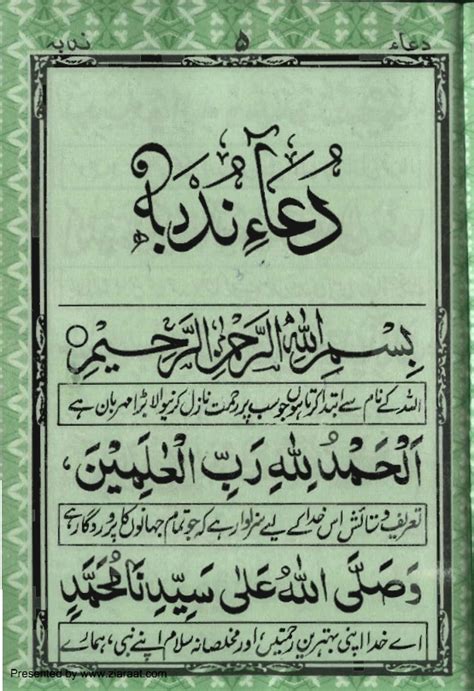 دعاء ۵ ندبہ
دُعَآءِ نُدبہ
بِسْمِ اللهِ الرَّحْمٰنِ الرَّحِيْمِ
اللہ کے نام سے ابتدا کرتا ہوں جو سب پر رحمت نازل کرنیوالا بڑا مہربان ہے
اَلْحَمْدُ لِلّٰهِ رَبِّ الْعٰلَمِيْنَ،
تعریف و ستائش اس خدا کے لیے سزاوار ہے کہ جو تمام جہانوں کا پروردگار ہے
وَصَلَّى اللهُ عَلٰى سَيِّدِنَا مُحَمَّدٍ
اے خدا اپنی بہترین رحمتیں، اور مخلصانہ سلام اپنے نبی، ہمارے
Presented by www.ziaraat.com